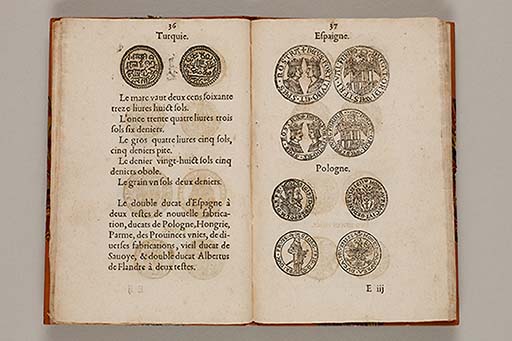 36
Turquie.
Le marc vaut deux cens soixante
treze liures huict sols.
L'once trente quatre liures trois
sols six deniers.
Le gros quatre liures cinq sols,
cinq deniers pite.
Le denier vingt-huict sols cinq
deniers obole.
Le grain vn sols deux deniers.
Le double ducat d'Espagne à
deux testes de nouuelle fabrica-
tion, ducats de Pologne, Hongrie,
Parme, des Prouinces vnies, de di-
uerses fabrications, vieil ducat de
Sauoye, & double ducat Albertus
de Flandre à deux testes.
37
Espaigne.
Pologne.
E iij